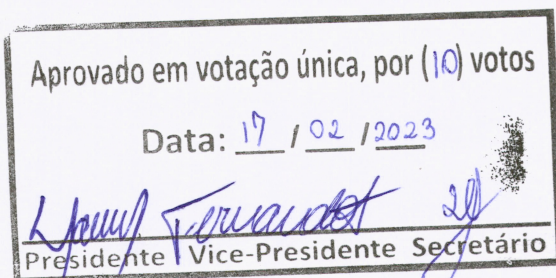 Aprovado em votação única, por (10) votos
Data: 17 / 02 / 2023
Fernandes
Presidente Vice-Presidente Secretário